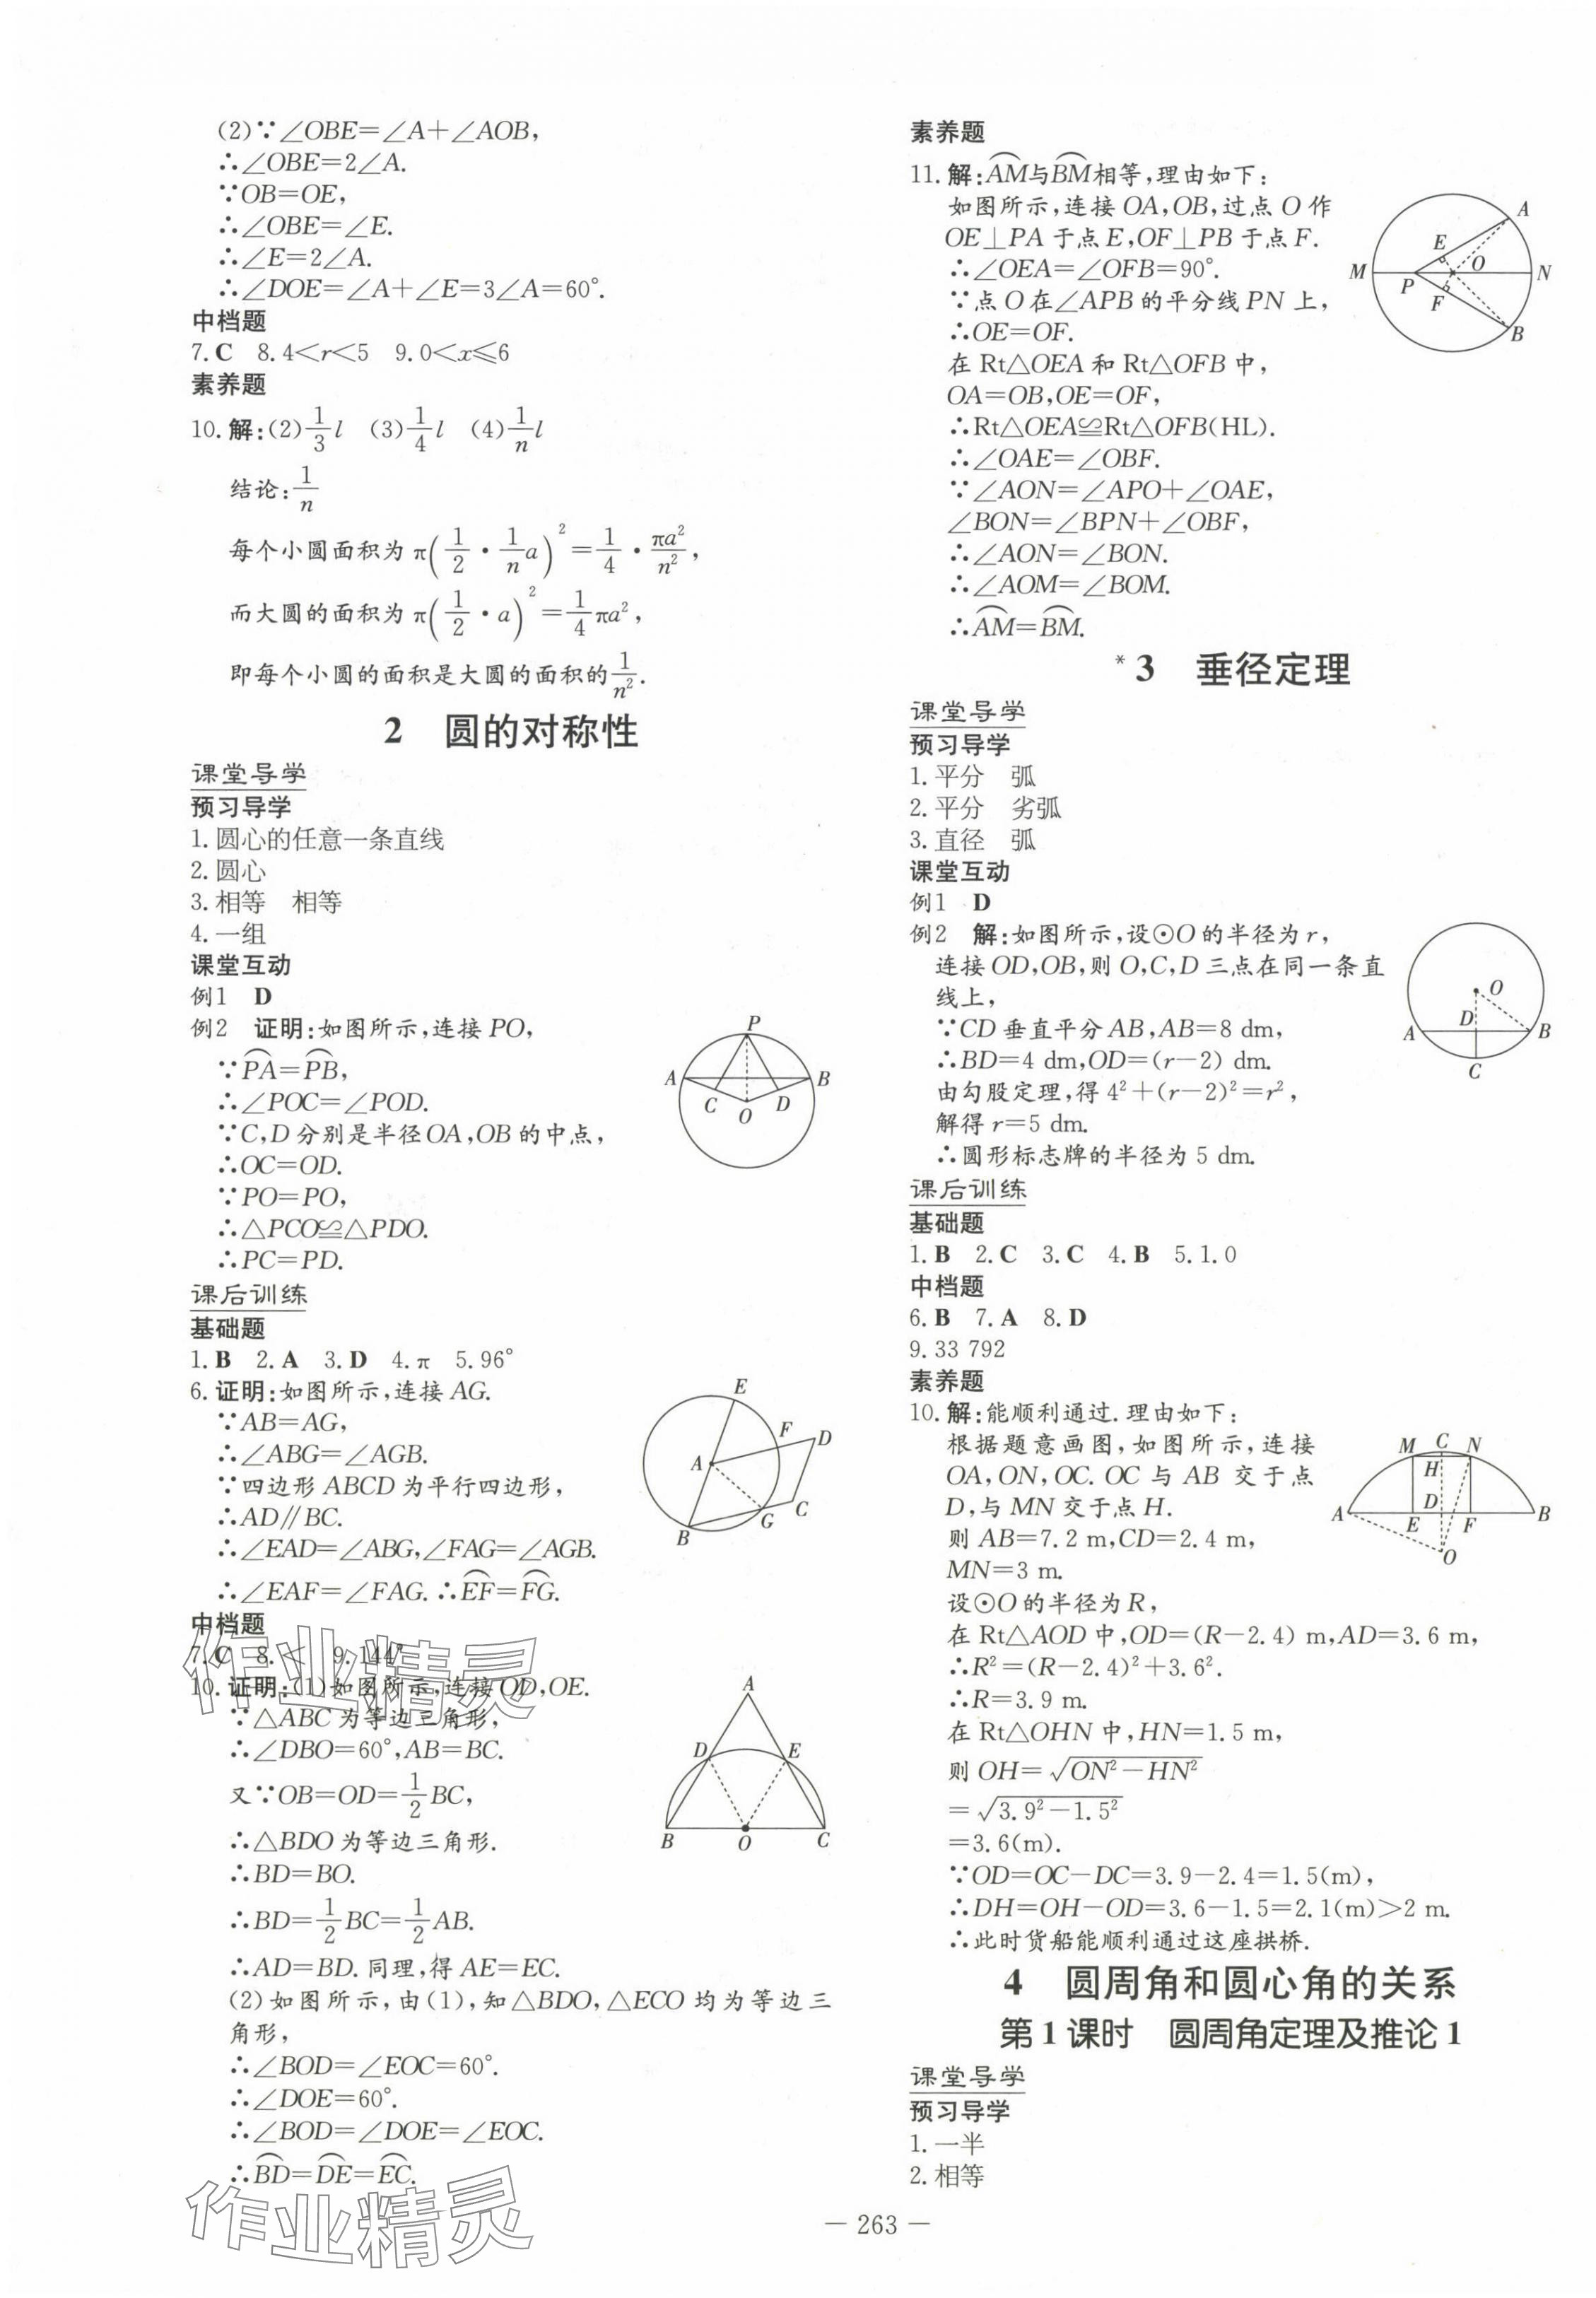 (2)∵∠OBE=∠A+∠AOB,
∴∠OBE=2∠A.
∵OB=OE,
∴∠OBE=∠E.
∴∠E=2∠A.
∴∠DOE=∠A+∠E=3∠A=60°.
中档题
7.C 8.4<r<5 9.0<x≤6
素养题
10.解:(2)1/3 l (3)1/4 l (4)1/n l
结论:1/n
每个小圆面积为 π(1/2·1/n a)²=1/4·πa²/n²,
而大圆的面积为 π(1/2·a)²=1/4πa²,
即每个小圆的面积是大圆的面积的1/n².
2 圆的对称性
课堂导学
预习导学
1.圆心的任意一条直线
2.圆心
3.相等 相等
4.一组
课堂互动
例1 D
例2 证明:如图所示,连接 PO,
∵P͡A=P͡B,
∴∠POC=∠POD.
∵C,D 分别是半径 OA,OB 的中点,
∴OC=OD.
∵PO=PO,
∴△PCO≌△PDO.
∴PC=PD.
P
A
B
C
D
O
课后训练
基础题
1.B 2.A 3.D 4.π 5.96°
6.证明:如图所示,连接 AG.
∵AB=AG,
∴∠ABG=∠AGB.
∵四边形 ABCD 为平行四边形,
∴AD∥BC.
∴∠EAD=∠ABG,∠FAG=∠AGB.
∴∠EAF=∠FAG.∴E͡F=F͡G.
E
F
D
A
C
G
B
中档题
7.C 8.< 9.144°
10.证明:(1)如图所示,连接 OD,OE.
∵△ABC 为等边三角形,
∴∠DBO=60°,AB=BC.
又∵OB=OD=1/2 BC,
∴△BDO 为等边三角形.
∴BD=BO.
∴BD=1/2 BC=1/2 AB.
∴AD=BD.同理,得 AE=EC.
(2)如图所示,由(1),知△BDO,△ECO 均为等边三
角形,
∴∠BOD=∠EOC=60°.
∴∠DOE=60°.
∴∠BOD=∠DOE=∠EOC.
∴B͡D=D͡E=E͡C.
A
D
E
B
O
C
作业精灵
作业精灵
素养题
11.解:A͡M与B͡M相等,理由如下:
如图所示,连接 OA,OB,过点 O 作
OE⊥PA 于点 E,OF⊥PB 于点 F.
∴∠OEA=∠OFB=90°.
∵点 O 在∠APB 的平分线 PN 上,
∴OE=OF.
在 Rt△OEA 和 Rt△OFB 中,
OA=OB,OE=OF,
∴Rt△OEA≌Rt△OFB(HL).
∴∠OAE=∠OBF.
∵∠AON=∠APO+∠OAE,
∠BON=∠BPN+∠OBF,
∴∠AON=∠BON.
∴∠AOM=∠BOM.
∴A͡M=B͡M.
A
E
O
M
N
P
F
B
*3 垂径定理
课堂导学
预习导学
1.平分 弧
2.平分 劣弧
3.直径 弧
课堂互动
例1 D
例2 解:如图所示,设⊙O 的半径为 r,
连接 OD,OB,则 O,C,D 三点在同一条直
线上,
∵CD 垂直平分 AB,AB=8 dm,
∴BD=4 dm,OD=(r-2) dm.
由勾股定理,得 4²+(r-2)²=r²,
解得 r=5 dm.
∴圆形标志牌的半径为 5 dm.
O
D
A
B
C
课后训练
基础题
1.B 2.C 3.C 4.B 5.1.0
中档题
6.B 7.A 8.D
9.33 792
素养题
10.解:能顺利通过.理由如下:
根据题意画图,如图所示,连接
OA,ON,OC. OC 与 AB 交于点
D,与 MN 交于点 H.
则 AB=7.2 m,CD=2.4 m,
MN=3 m.
设⊙O 的半径为 R,
在 Rt△AOD 中,OD=(R-2.4) m,AD=3.6 m,
∴R²=(R-2.4)²+3.6².
∴R=3.9 m.
在 Rt△OHN 中,HN=1.5 m,
则 OH=√(ON²-HN²)
=√(3.9²-1.5²)
=3.6(m).
∵OD=OC-DC=3.9-2.4=1.5(m),
∴DH=OH-OD=3.6-1.5=2.1(m)>2 m.
∴此时货船能顺利通过这座拱桥.
M
C
N
H
D
A
E
F
B
O
4 圆周角和圆心角的关系
第1课时 圆周角定理及推论1
课堂导学
预习导学
1.一半
2.相等
— 263 —